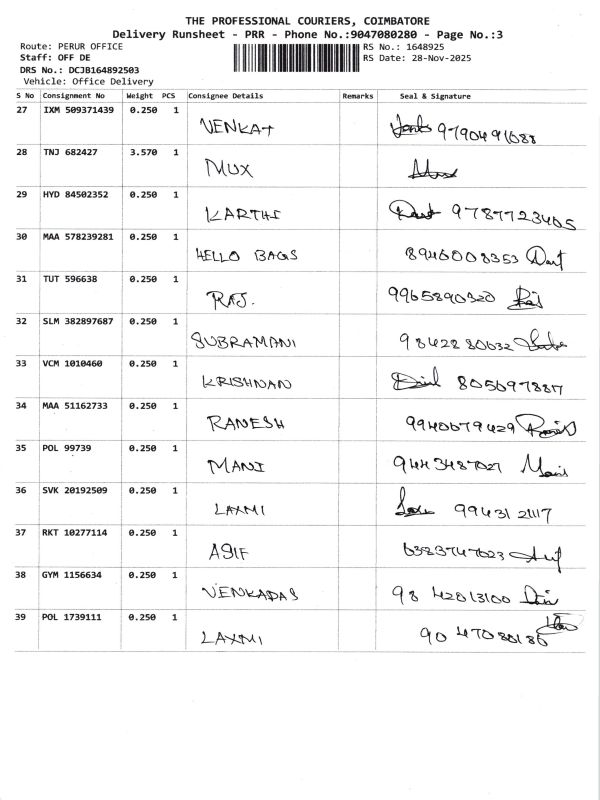 THE PROFESSIONAL COURIERS, COIMBATORE
Delivery Runsheet - PRR - Phone No.:9047080280 - Page No.:3
Route: PERUR OFFICE RS No.: 1648925
Staff: OFF DE RS Date: 28-Nov-2025
DRS No.: DCJB164892503
Vehicle: Office Delivery
S No Consignment No Weight PCS Consignee Details Remarks Seal & Signature
27 IXM 509371439 0.250 1 VENKAT 9790491688
28 TNJ 682427 3.570 1 MUX
29 HYD 84502352 0.250 1 KARTHI 9787723405
30 MAA 578239281 0.250 1 HELLO BAGS 8946008353
31 TUT 596638 0.250 1 RAJ. 9965890320
32 SLM 382897687 0.250 1 SUBRAMANI 9842280632
33 VCM 1010460 0.250 1 KRISHNAN 805697887
34 MAA 51162733 0.250 1 RANESH 9940679429
35 POL 99739 0.250 1 MANI 9443487027 Mani
36 SVK 20192509 0.250 1 LAXMI 9943121117
37 RKT 10277114 0.250 1 ASIF 6383747023
38 GYM 1156634 0.250 1 VENKADAS 9842013100
39 POL 1739111 0.250 1 LAXMI 9047080186